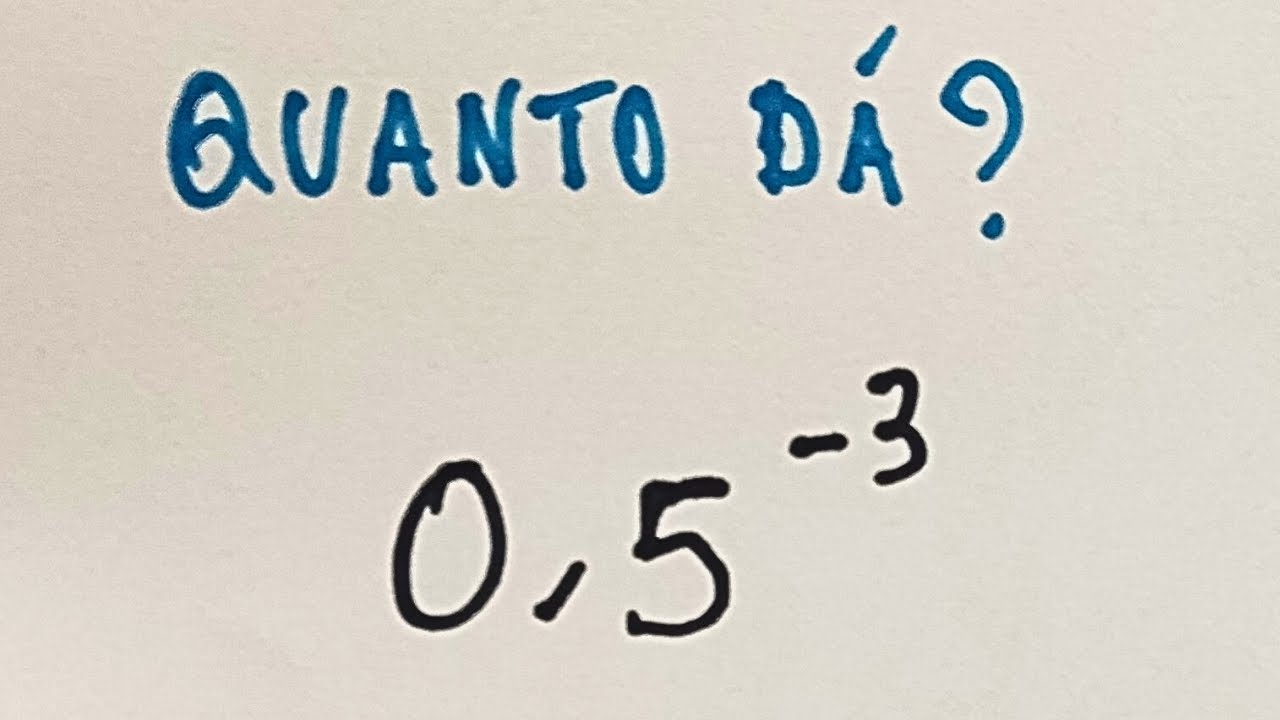 QUANTO DÁ?
0,5⁻³